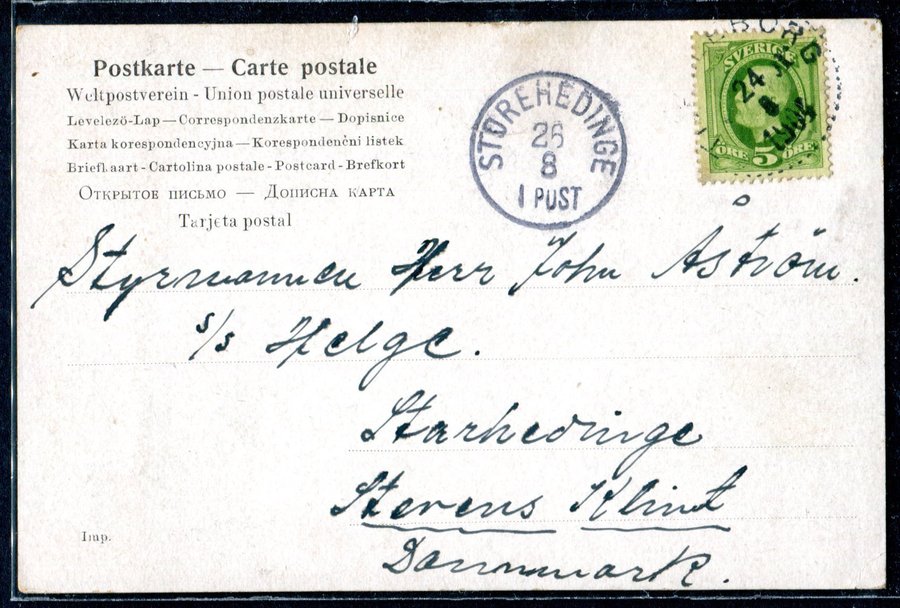 Postkarte — Carte postale
Weltpostverein - Union postale universelle
Levelező-Lap — Correspondenzkarte — Dopisnice
Karta korespondencyjna — Korespondenční listek
Briefkaart - Cartolina postale - Postcard - Brefkort
Открытое письмо — Дописна карта
Tarjeta postal
STOREHEDINGE
26
8
1 POST
BORG
24
8
SVERIGE
ÖRE 5 ÖRE
Styrmannen Herr John Åström.
s/s Helge.
Starhedinge
Stevens Klint
Dannmark.
Imp.